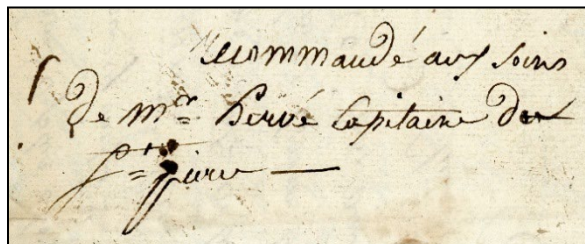 recommandé aux soins
de Mr. Hervé Capitaine du